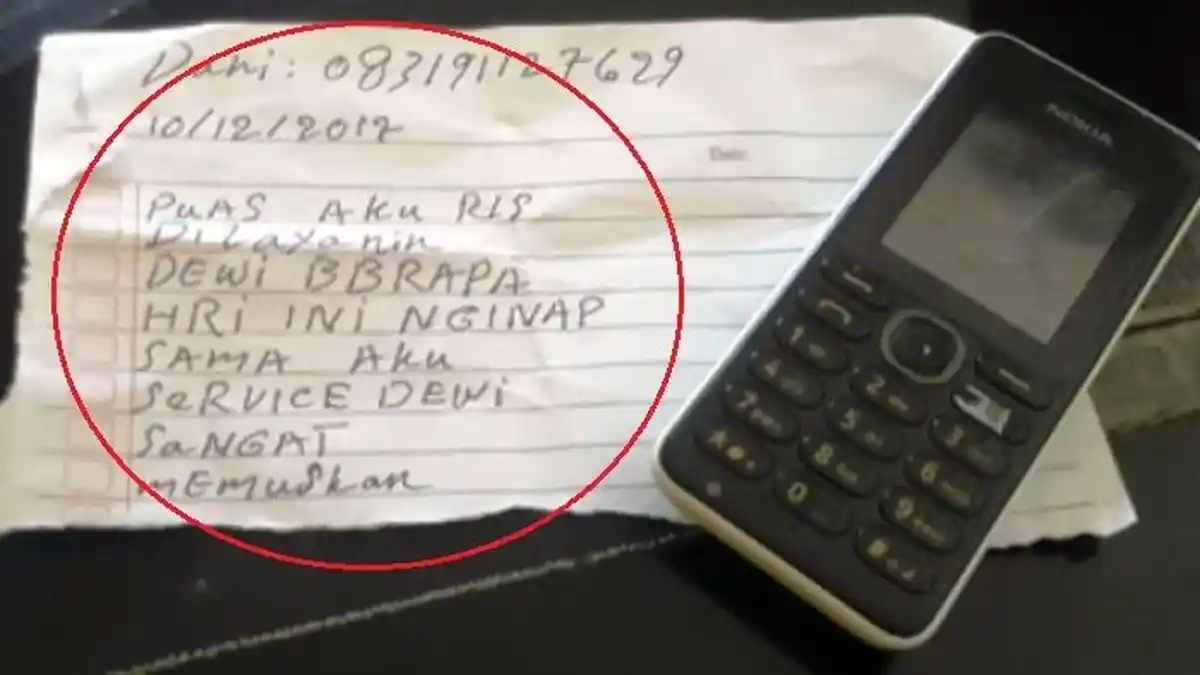 Dani: 083191127629
10/12/2017
Date:
PUAS AKU RIS
DiLAYANin
DEWi BBRAPA
HRi INI NGINAP
SAMA AKU
SeRVICE DEWi
SaNGAT
mEmuSkan
NOKIA
1
2
3
4
5
6
7
8
9
0